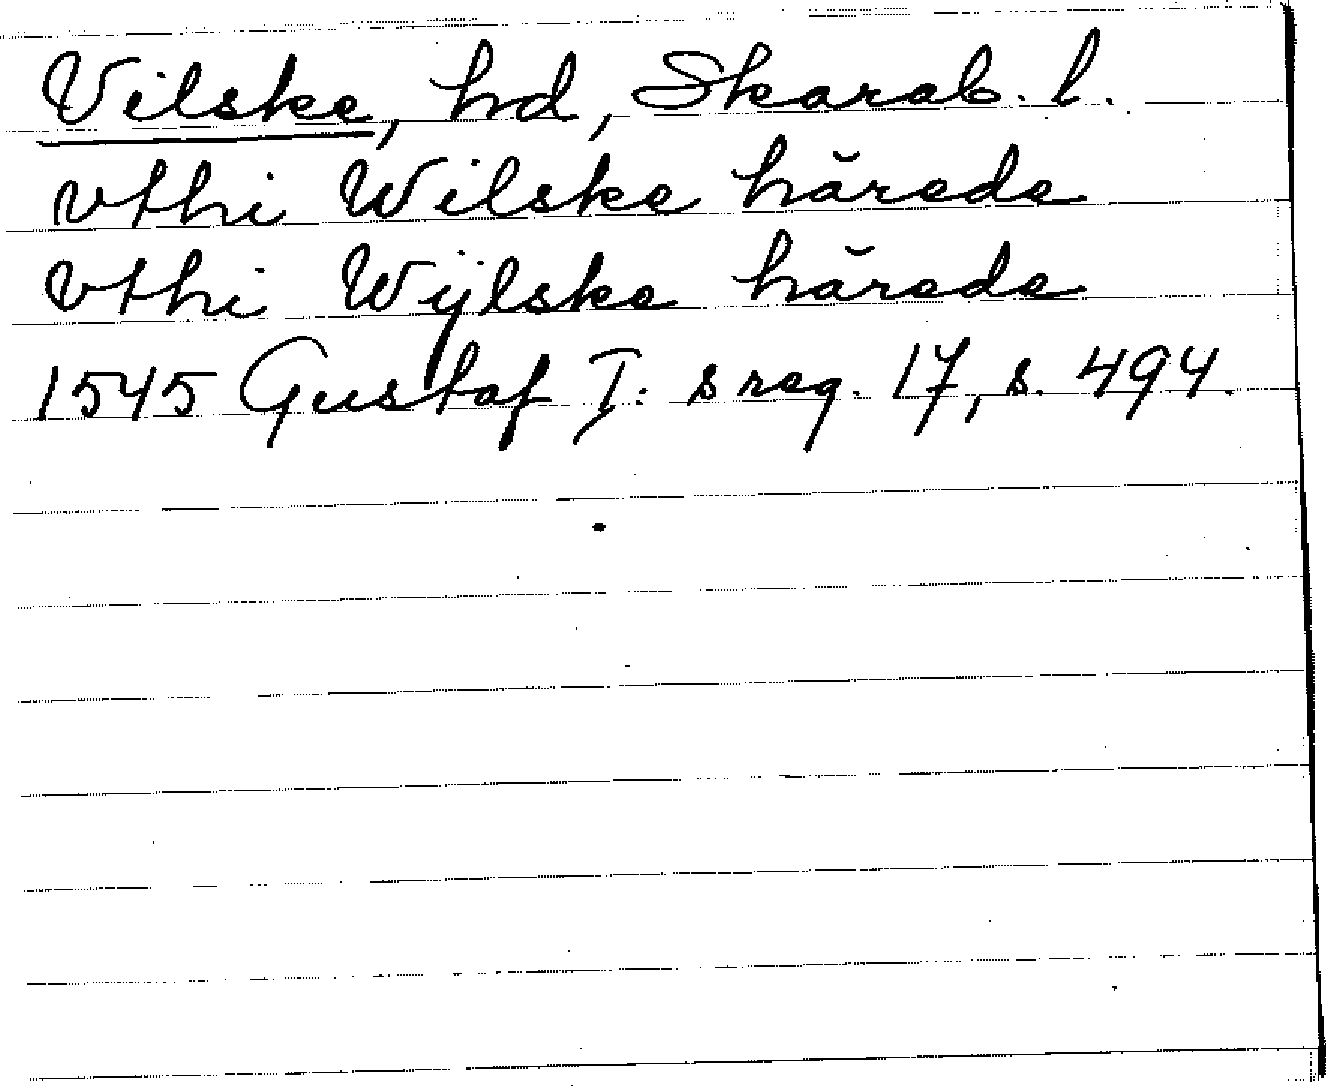 Vilske, hd, Skarab. l.
vthi Wilske härede
vthi Wijlske härede
1545 Gustaf I: s reg. 17, s. 494.